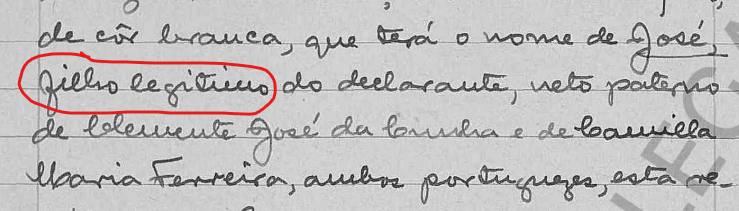 de côr branca, que terá o nome de José,
filho legitimo do declarante, neto paterno
de Clemente José da Cunha e de Camilla
Maria Ferreira, ambos portuguezes, esta re-